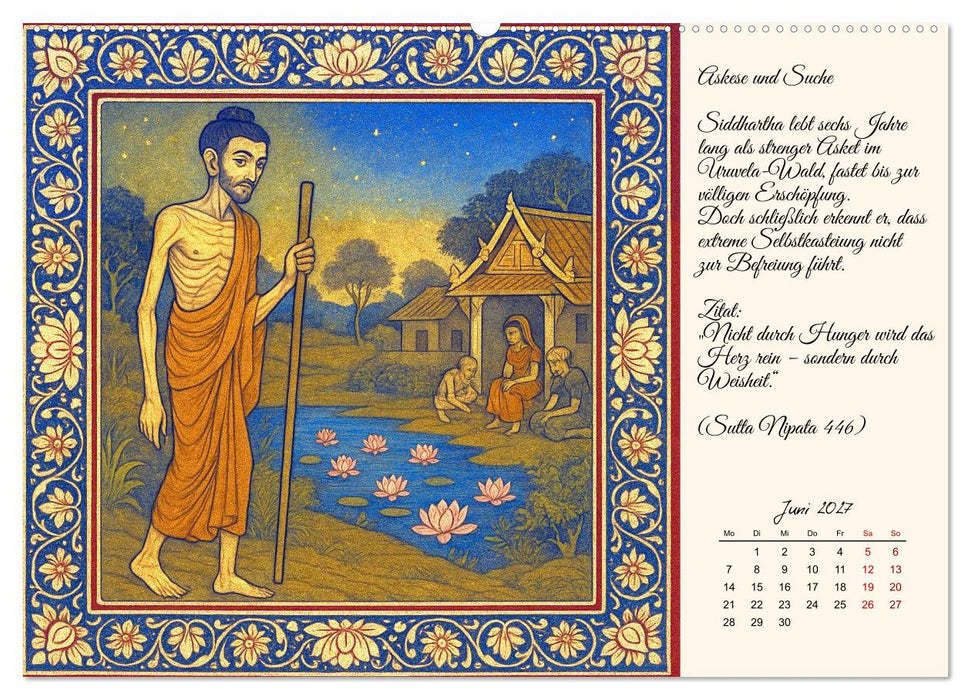 Askese und Suche
Siddhartha lebt sechs Jahre
lang als strenger Asket im
Uruvela-Wald, fastet bis zur
völligen Erschöpfung.
Doch schließlich erkennt er, dass
extreme Selbstkasteiung nicht
zur Befreiung führt.
Zitat:
„Nicht durch Hunger wird das
Herz rein – sondern durch
Weisheit.“
(Sutta Nipata 446)
Juni 2027
Mo Di Mi Do Fr Sa So
1 2 3 4 5 6
7 8 9 10 11 12 13
14 15 16 17 18 19 20
21 22 23 24 25 26 27
28 29 30